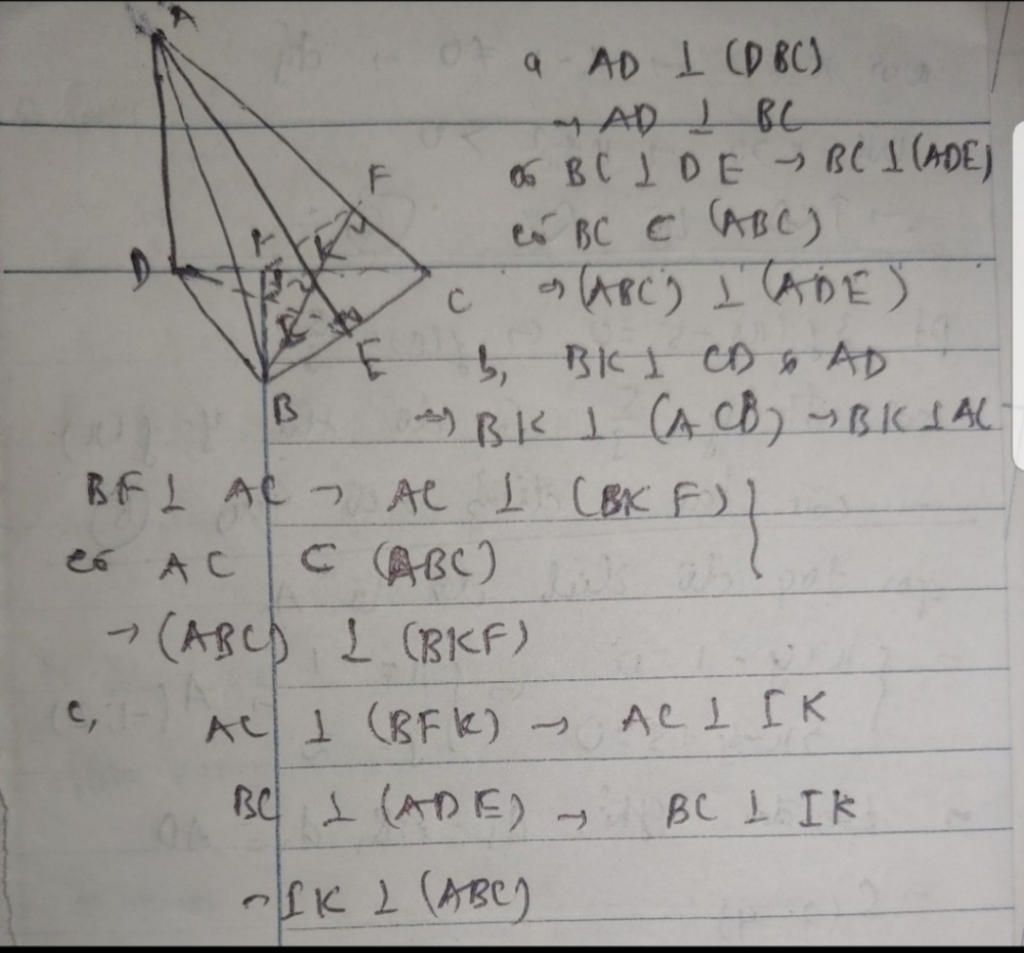 A
a AD ⊥ (DBC)
→ AD ⊥ BC
có BC ⊥ DE → BC ⊥ (ADE)
F
có BC ⊂ (ABC)
D
K
C
⇒ (ABC) ⊥ (ADE)
E
b, BK ⊥ CD & AD
B
⇒ BK ⊥ (ACD) → BK ⊥ AC
BF ⊥ AC → AC ⊥ (BKF) }
có AC ⊂ (ABC)
→ (ABC) ⊥ (BKF)
c, AC ⊥ (BFK) → AC ⊥ IK
BC ⊥ (ADE) → BC ⊥ IK
→ IK ⊥ (ABC)